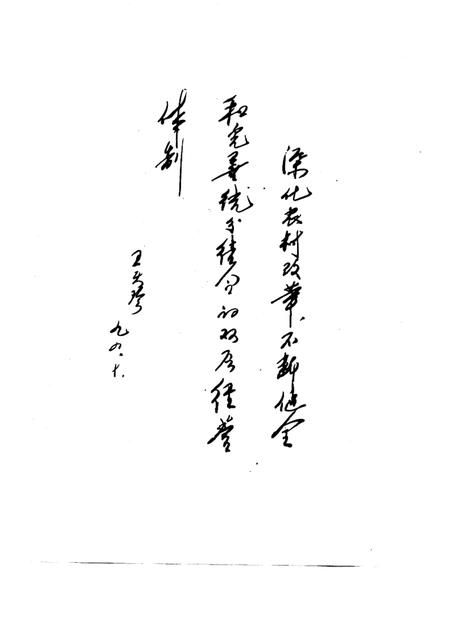 深化农村改革，不断健全
和完善统分结合的双层经营
体制
王
九〇.十.